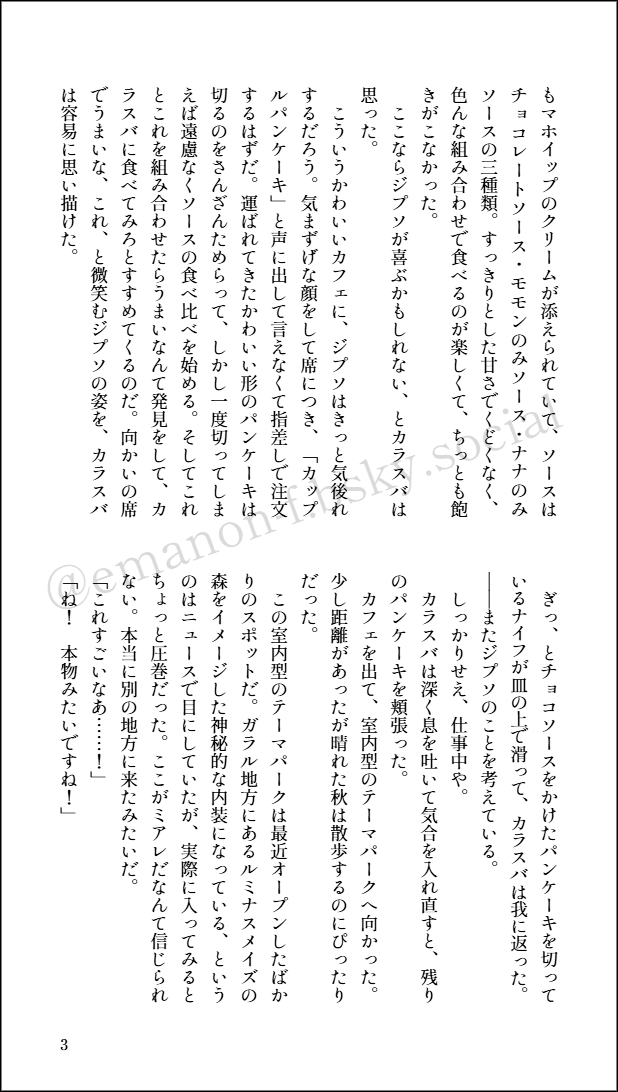 もマホイップのクリームが添えられていて、ソースは
チョコレートソース・モモンのみソース・ナナのみ
ソースの三種類。すっきりとした甘さでくどくなく、
色んな組み合わせで食べるのが楽しくて、ちっとも飽
きがこなかった。
　ここならジプソが喜ぶかもしれない、とカラスバは
思った。
　こういうかわいいカフェに、ジプソはきっと気後れ
するだろう。気まずげな顔をして席につき、「カップ
ルパンケーキ」と声に出して言えなくて指差しで注文
するはずだ。運ばれてきたかわいい形のパンケーキは
切るのをさんざんためらって、しかし一度切ってしま
えば遠慮なくソースの食べ比べを始める。そしてこれ
とこれを組み合わせたらうまいなんて発見をして、カ
ラスバに食べてみろとすすめてくるのだ。向かいの席
でうまいな、これ、と微笑むジプソの姿を、カラスバ
は容易に思い描けた。
　ぎっ、とチョコソースをかけたパンケーキを切って
いるナイフが皿の上で滑って、カラスバは我に返った。
――またジプソのことを考えている。
　しっかりせえ、仕事中や。
　カラスバは深く息を吐いて気合を入れ直すと、残り
のパンケーキを頬張った。
　カフェを出て、室内型のテーマパークへ向かった。
少し距離があったが晴れた秋は散歩するのにぴったり
だった。
　この室内型のテーマパークは最近オープンしたばか
りのスポットだ。ガラル地方にあるルミナスメイズの
森をイメージした神秘的な内装になっている、という
のはニュースで目にしていたが、実際に入ってみると
ちょっと圧巻だった。ここがミアレだなんて信じられ
ない。本当に別の地方に来たみたいだ。
「これすごいなあ……！」
「ね！　本物みたいですね！」
3
@emanon-f.bsky.social